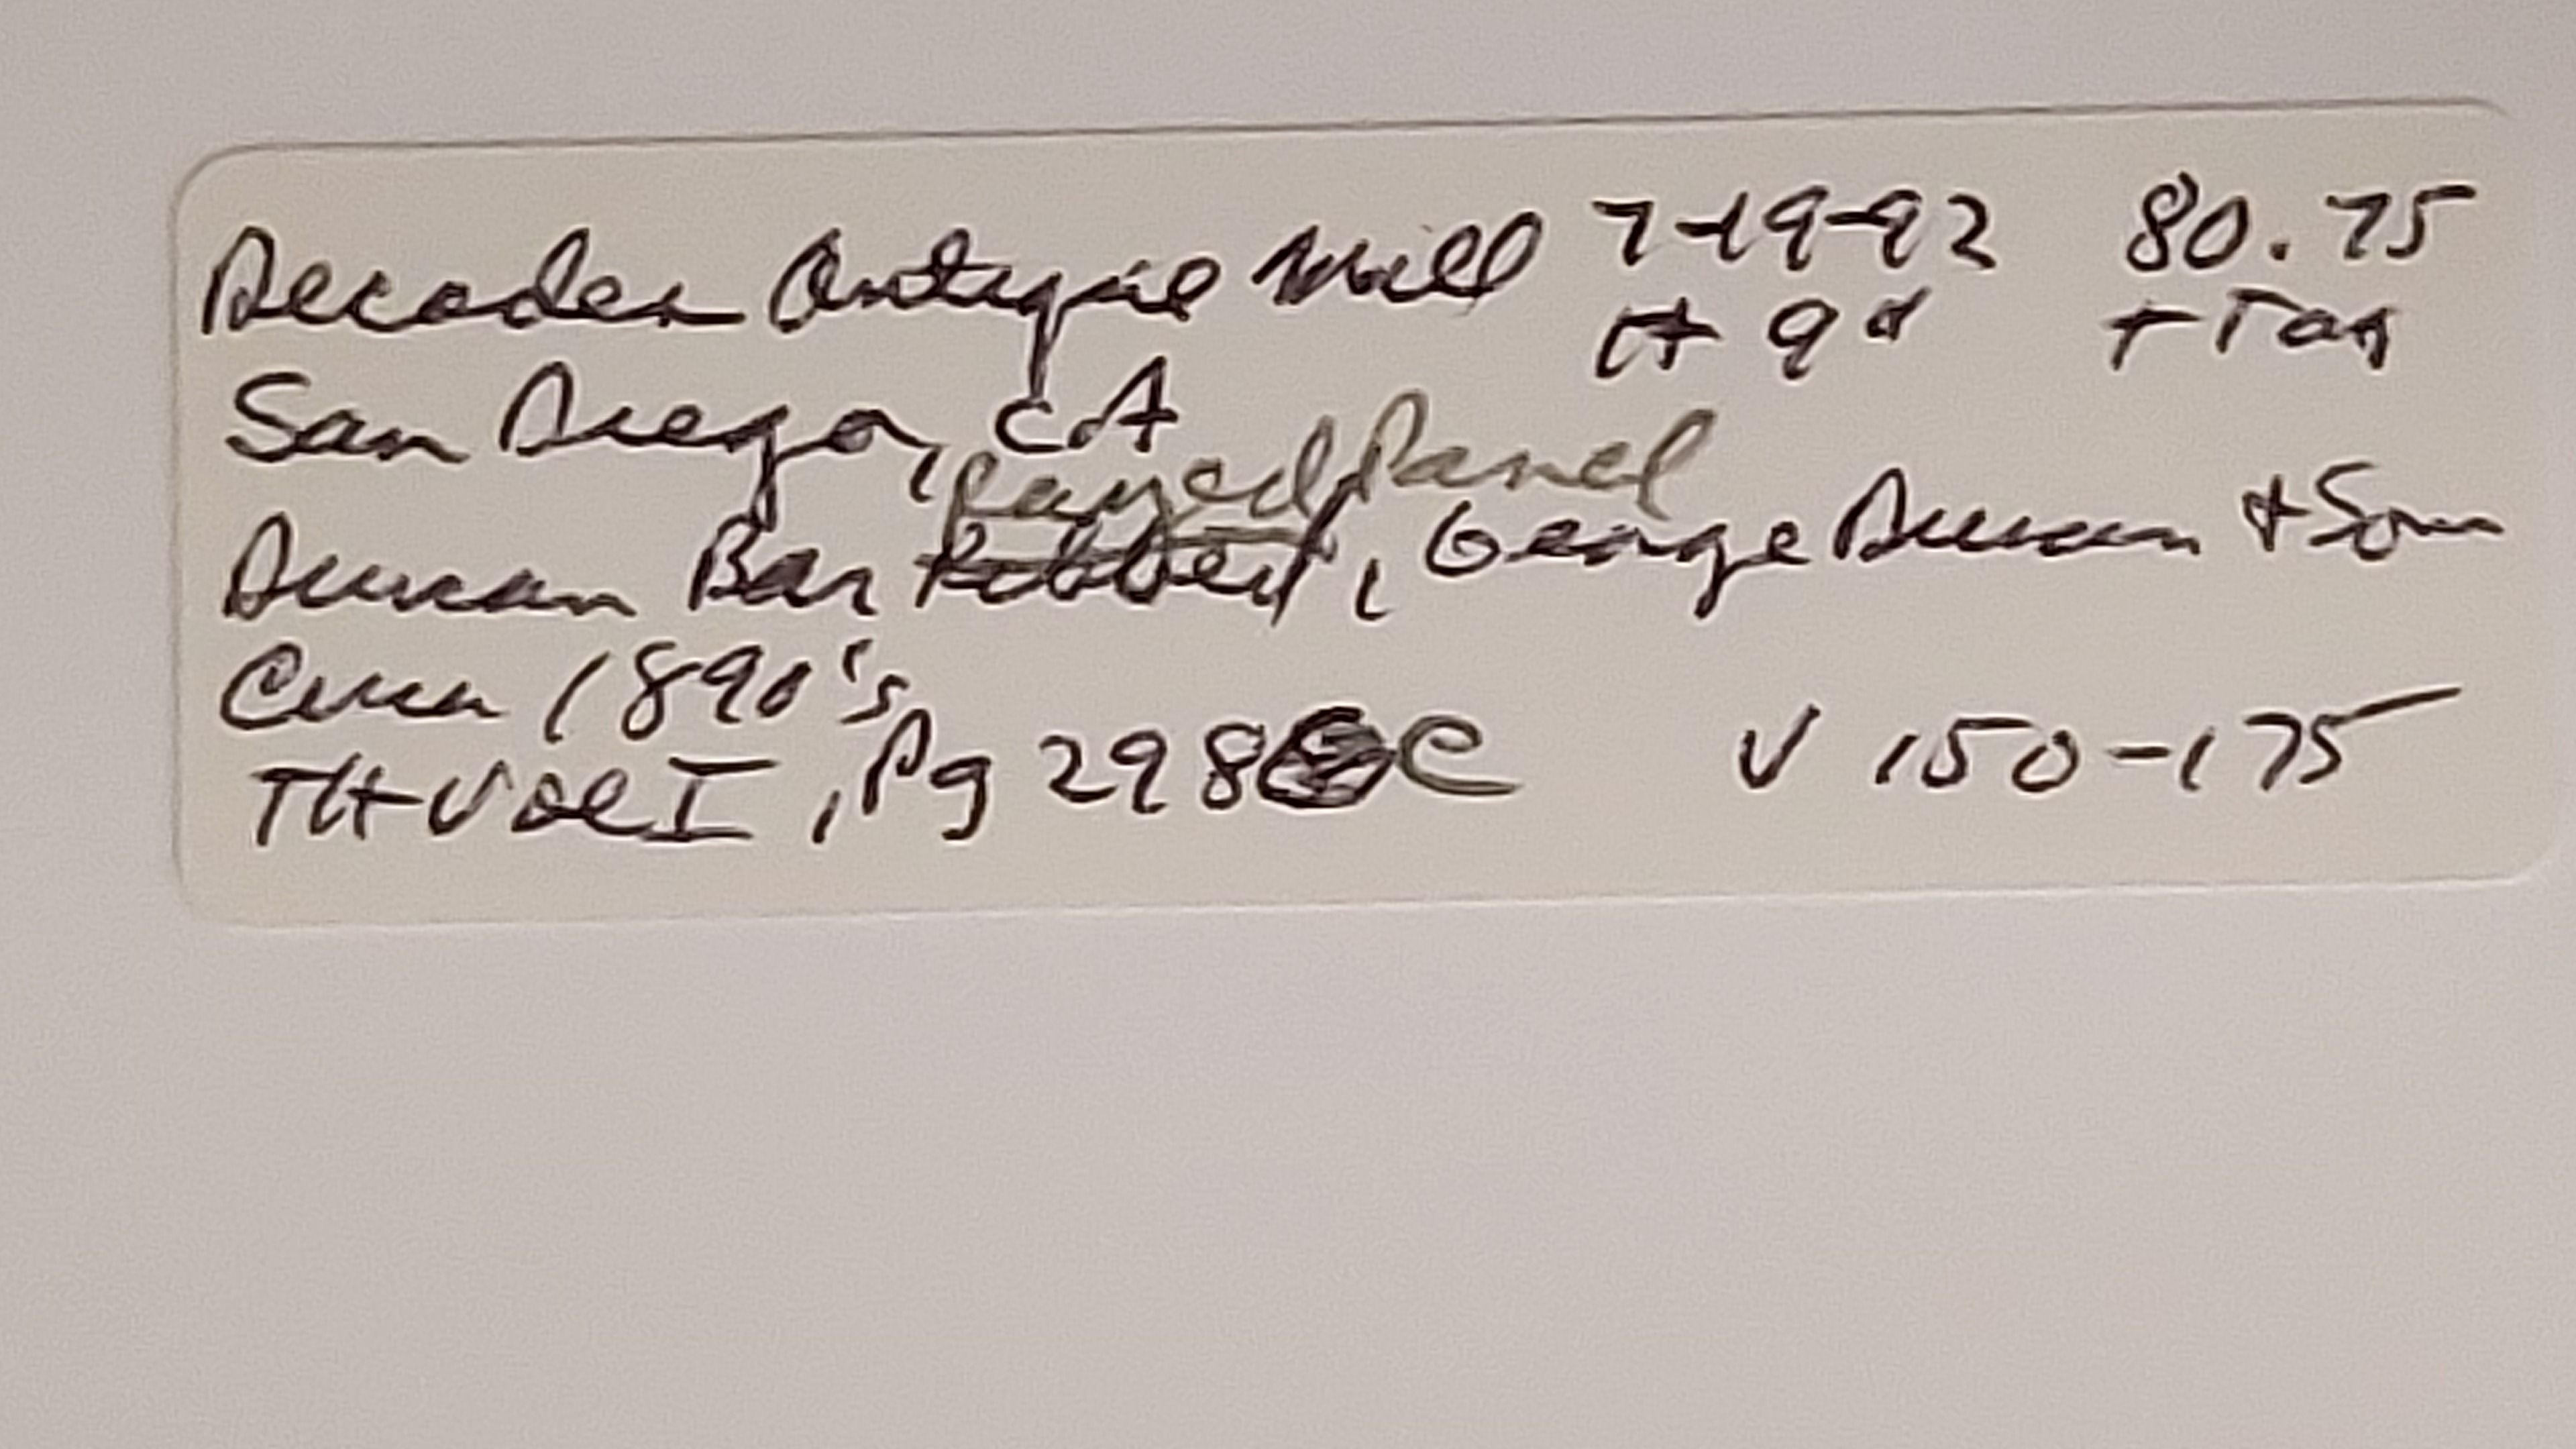 Decades Antique Mall 7-19-92 80.75
Ht 9" + Tax
San Diego, CA
Rayed Panel
Duncan Bar Ribbed, George Duncan + Sons
Circa 1890's
TH Vol I, Pg 298 C V 150-175